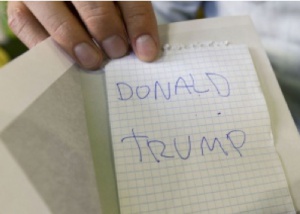 DONALD
TRUMP